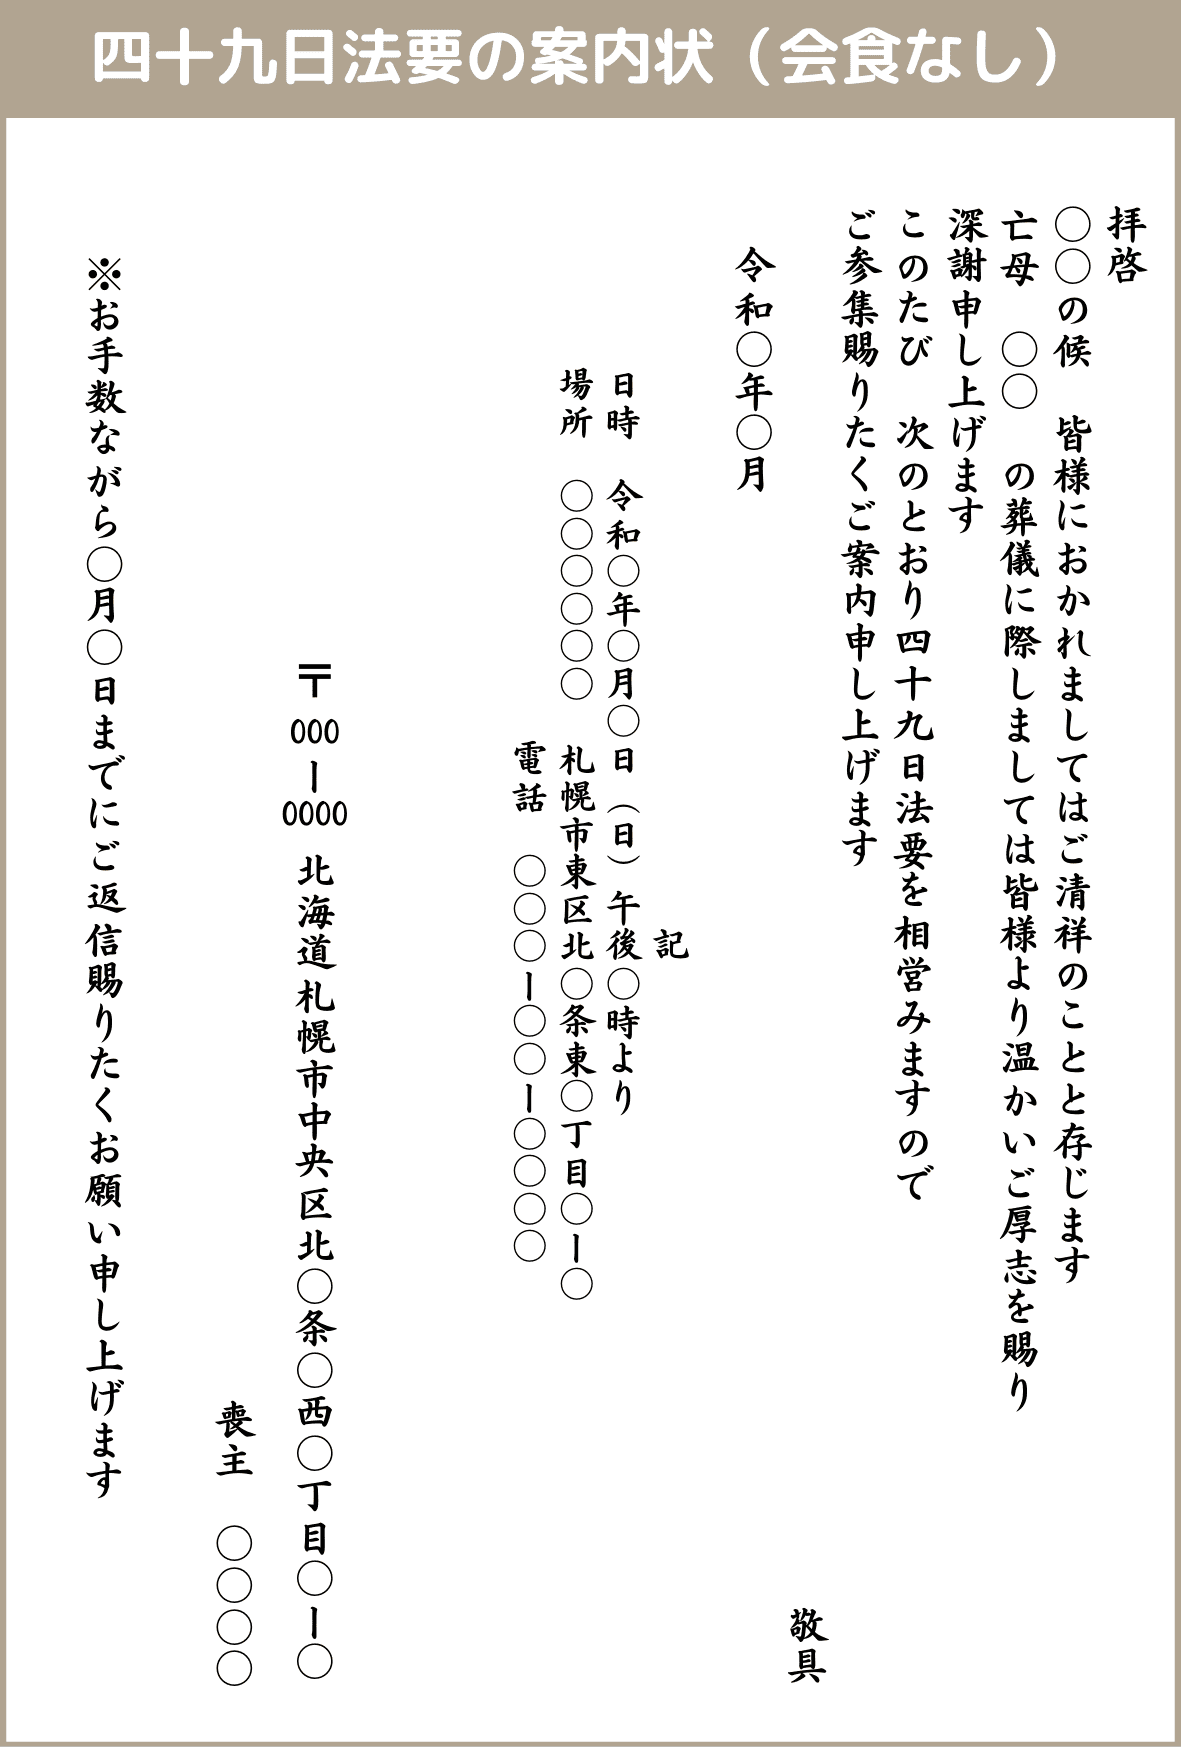 四十九日法要の案内状（会食なし）
拝啓
〇〇の候　皆様におかれましてはご清祥のことと存じます
亡母　〇〇　の葬儀に際しましては皆様より温かいご厚志を賜り
深謝申し上げます
このたび　次のとおり四十九日法要を相営みますので
ご参集賜りたくご案内申し上げます
敬具
令和〇年〇月
記
日時　令和〇年〇月〇日（日）午後〇時より
場所　〇〇〇〇〇〇　札幌市東区北〇条東〇丁目〇ー〇
電話　〇〇〇ー〇〇ー〇〇〇〇
〒000ー0000 北海道札幌市中央区北〇条〇西〇丁目〇ー〇
喪主　〇〇〇〇
※お手数ながら〇月〇日までにご返信賜りたくお願い申し上げます